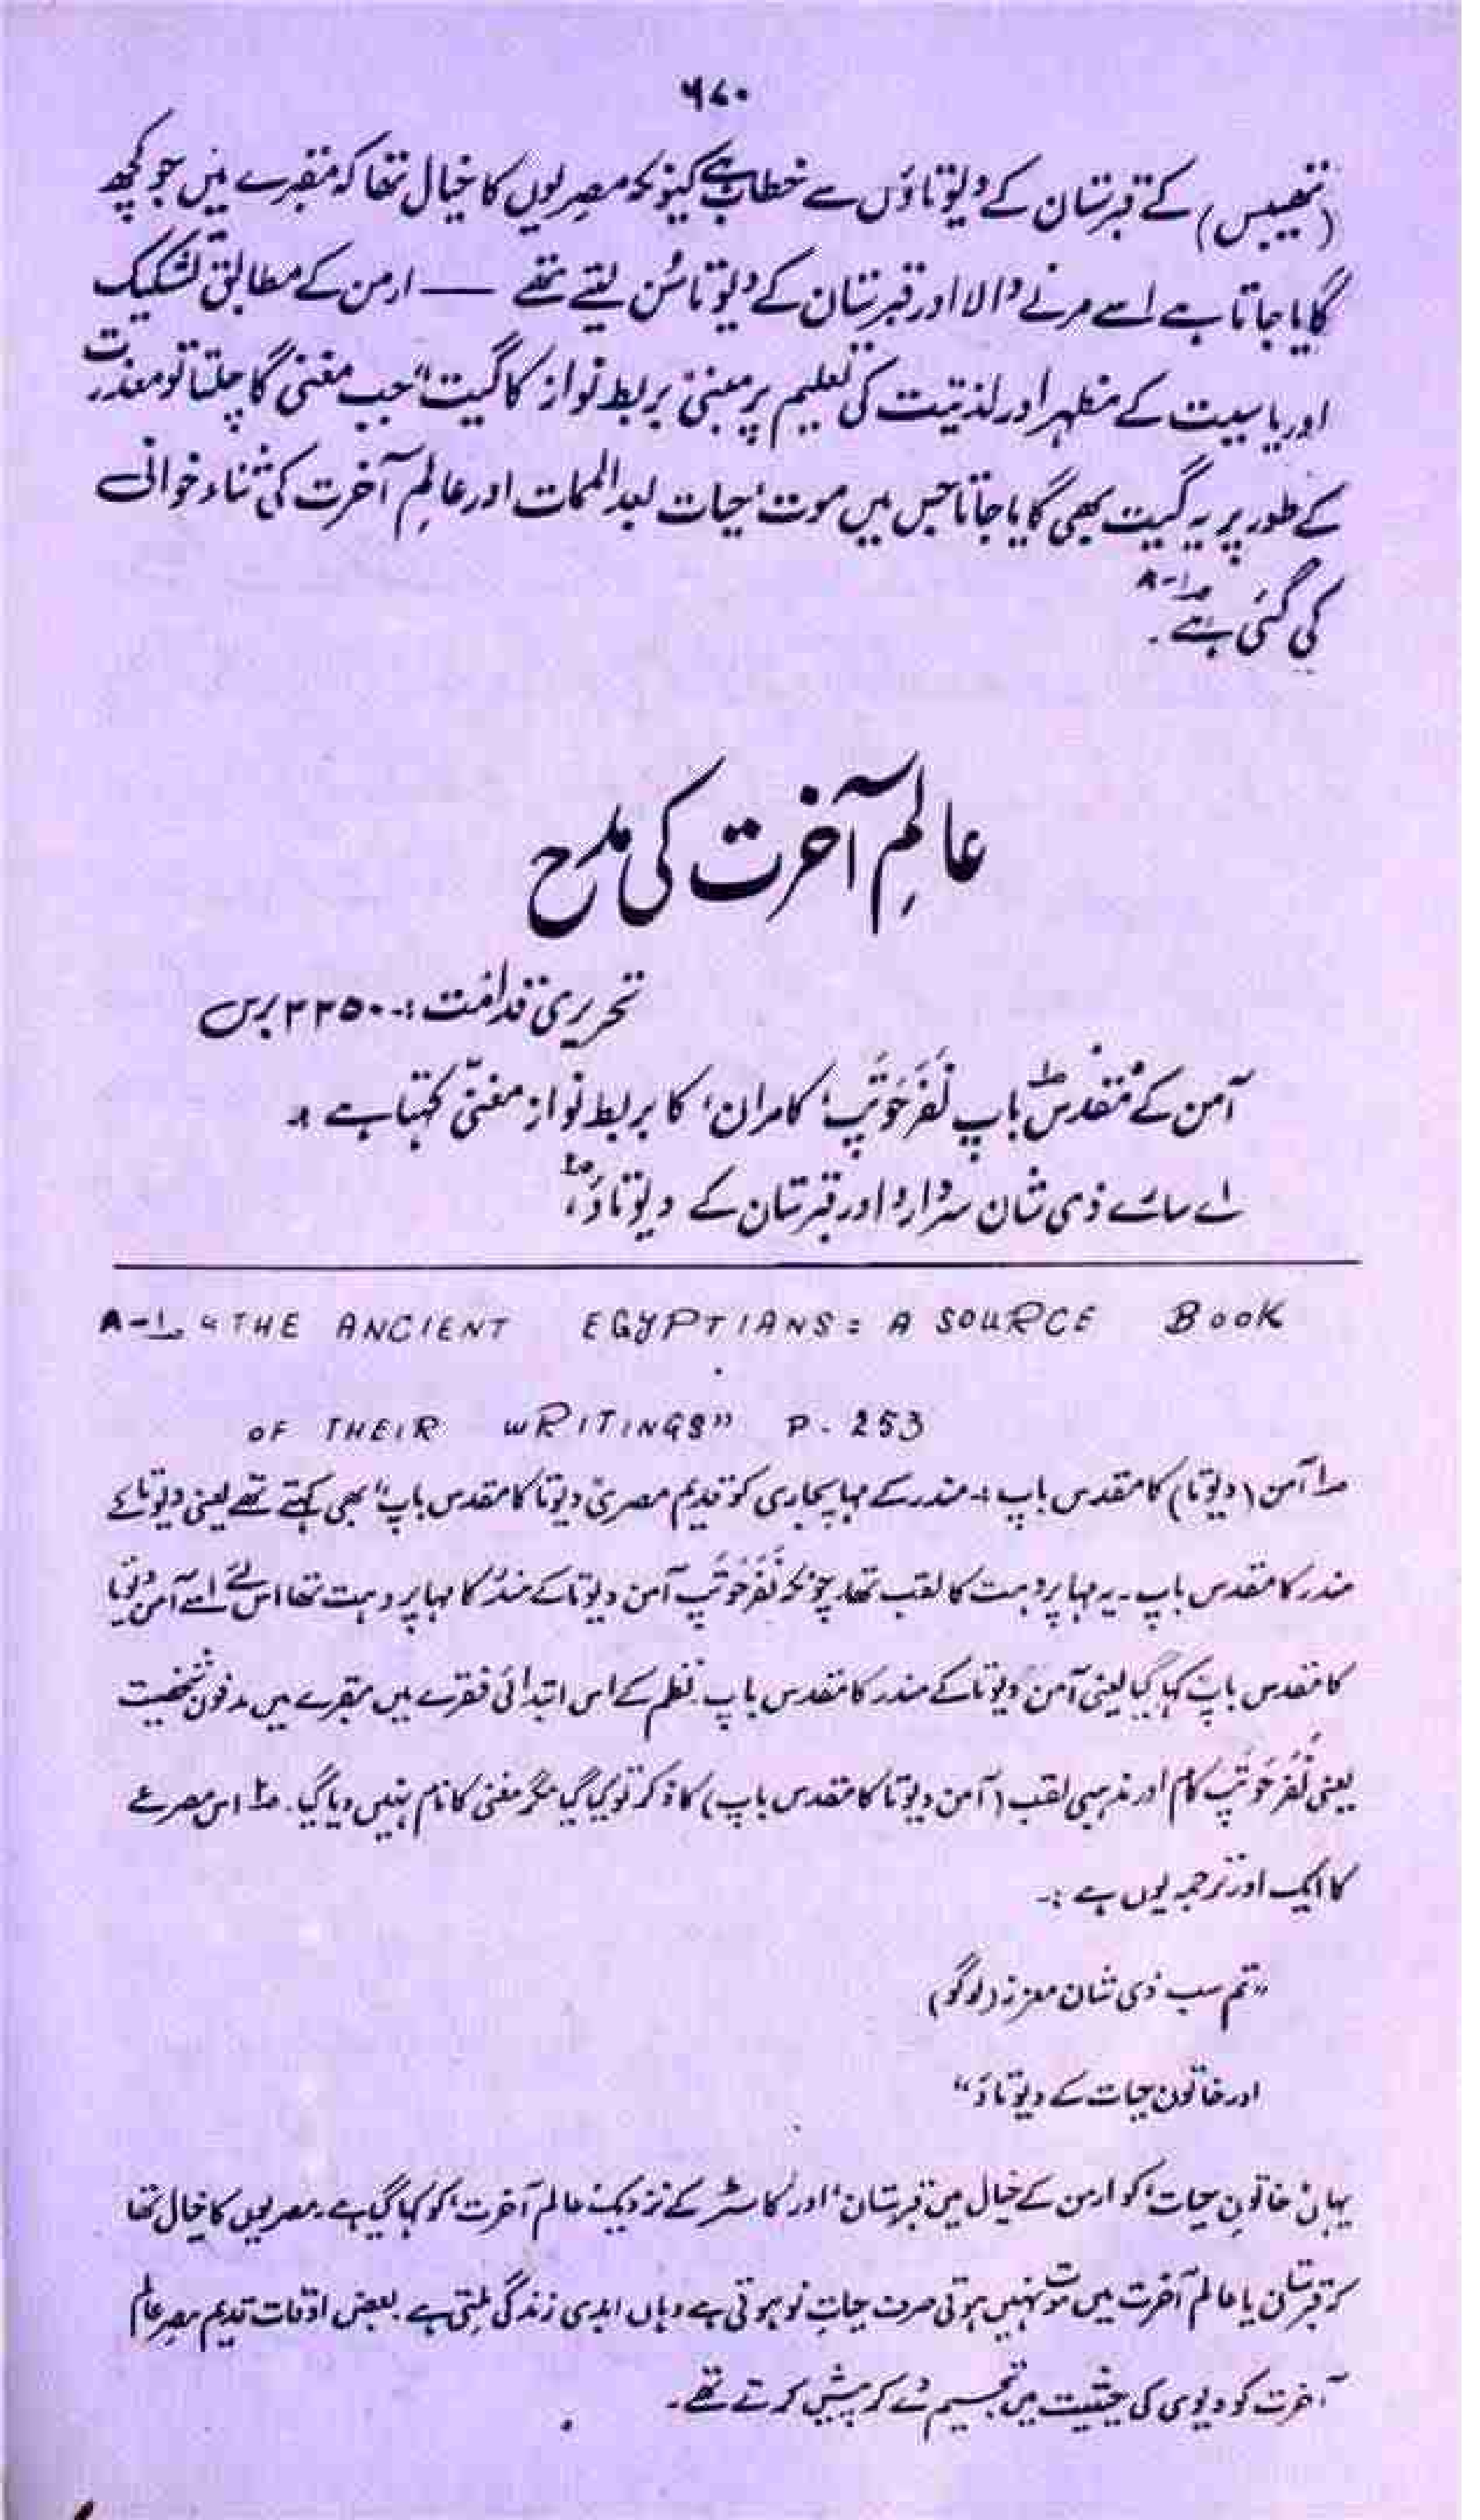 ۶۷۰
(تھیبس) کے قبرستان کے دیوتاؤں سے خطاب ہے کیونکہ مصریوں کا خیال تھا کہ مقبرے میں جو کچھ
گایا جاتا ہے اسے مرنے والا اور قبرستان کے دیوتا سُن لیتے تھے — ارمن کے مطابق تشکیک
اور یاسیت کے مظہر اور لذتیت کی تعلیم پر مبنی بربط نواز کا گیت" جب مغنی گا چکتا تو معذرت
کے طور پر یہ گیت بھی گایا جاتا جس میں موت، حیات بعد الممات اور عالمِ آخرت کی ثناء خوانی
کی گئی ہے A-۱۔
عالمِ آخرت کی مدح
تحریری قدامت :۔ ۳۳۵۰ برس
آمن کے مُقدس باپ نَفَرحَوتَپ، کامران، کا بربط نواز مغنّی کہتا ہے :۔
اے سارے ذی شان سردارو اور قبرستان کے دیوتاؤ،۲
A-۱ "THE ANCIENT EGYPTIANS: A SOURCE BOOK
OF THEIR WRITINGS" P. 253
۱ آمن (دیوتا) کا مقدس باپ :۔ مندر کے مہا پجاری کو قدیم مصری دیوتا کا مقدس باپ" بھی کہتے تھے یعنی دیوتا کے
مندر کا مقدس باپ۔ یہ مہا پروہت کا لقب تھا۔ چونکہ نَفَرحَوتَپ آمن دیوتا کے مندر کا مہا پروہت تھا اس لئے اسے آمن دیوتا
کا مقدس باپ کہا گیا یعنی آمن دیوتا کے مندر کا مقدس باپ۔ نظم کے اس ابتدائی فقرے میں مقبرے میں مدفون شخصیت
یعنی نَفَرحَوتَپ کا نام اور مذہبی لقب (آمن دیوتا کا مقدس باپ) کا ذکر تو کیا گیا مگر مغنی کا نام نہیں دیا گیا۔ ۲ اس مصرعے
کا ایک اور ترجمہ یوں ہے :۔
"تم سب ذی شان معزز (لوگو)
اور خاتون حیات کے دیوتاؤ"
یہاں 'خاتونِ حیات' کو ارمن کے خیال میں قبرستان' اور کاسٹر کے نزدیک 'عالم آخرت' کو کہا گیا ہے۔ مصریوں کا خیال تھا
کہ قبرستان یا عالم آخرت میں موت نہیں ہوتی صرف حیاتِ نو ہوتی ہے وہاں ابدی زندگی ملتی ہے۔ بعض اوقات قدیم مصر عالم
آخرت کو دیوی کی حیثیت میں تجسیم دے کر پیش کرتے تھے۔